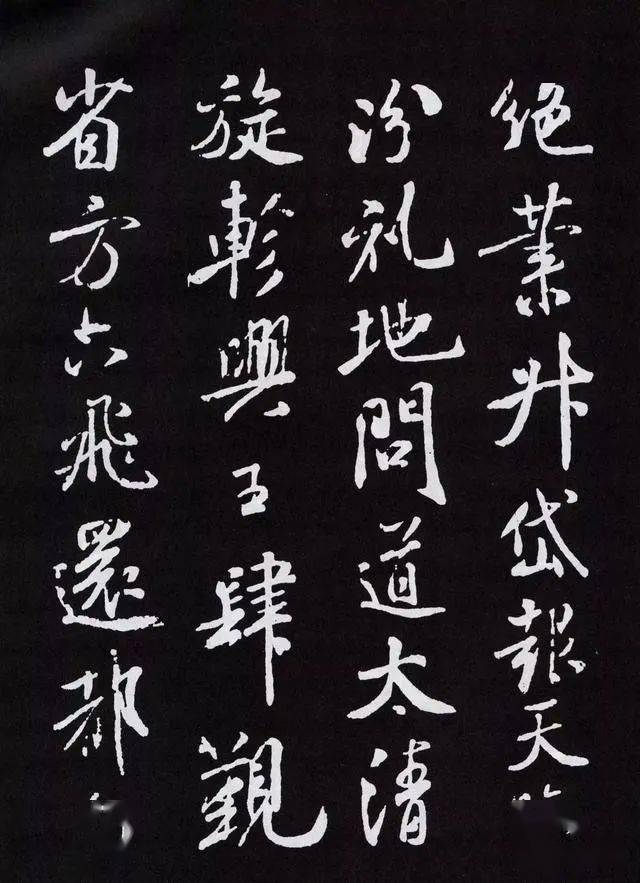 絶業升岱報天
汾礼地問道太清
旋軫興王肆覲
省方六飛還都